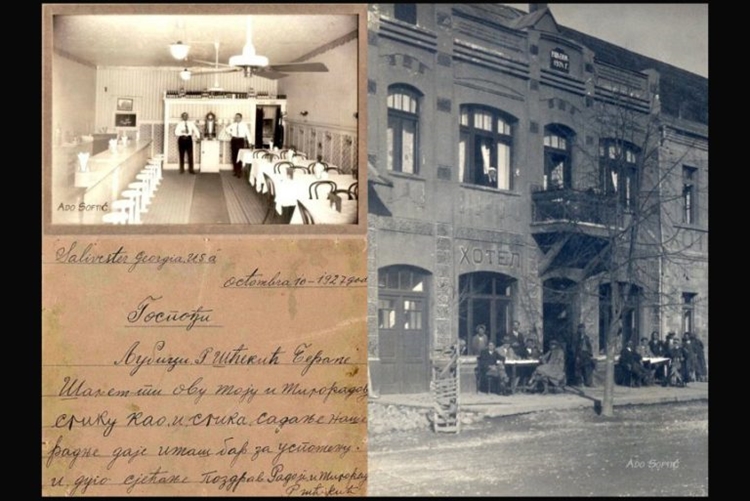 ADO SOFTIĆ
Salivester Georgia, U.S.A
octombra 10 - 1927 год
Госпођи
Љубици Р Шћекић Беране
Шаљем ти ову моју и Миорадов
слику као и слика садање наше
радње даје имаш бар за успомену.
и дуго сјећање поздрав Радоји и Миорад
ХОТЕЛ
ADO SOFTIĆ